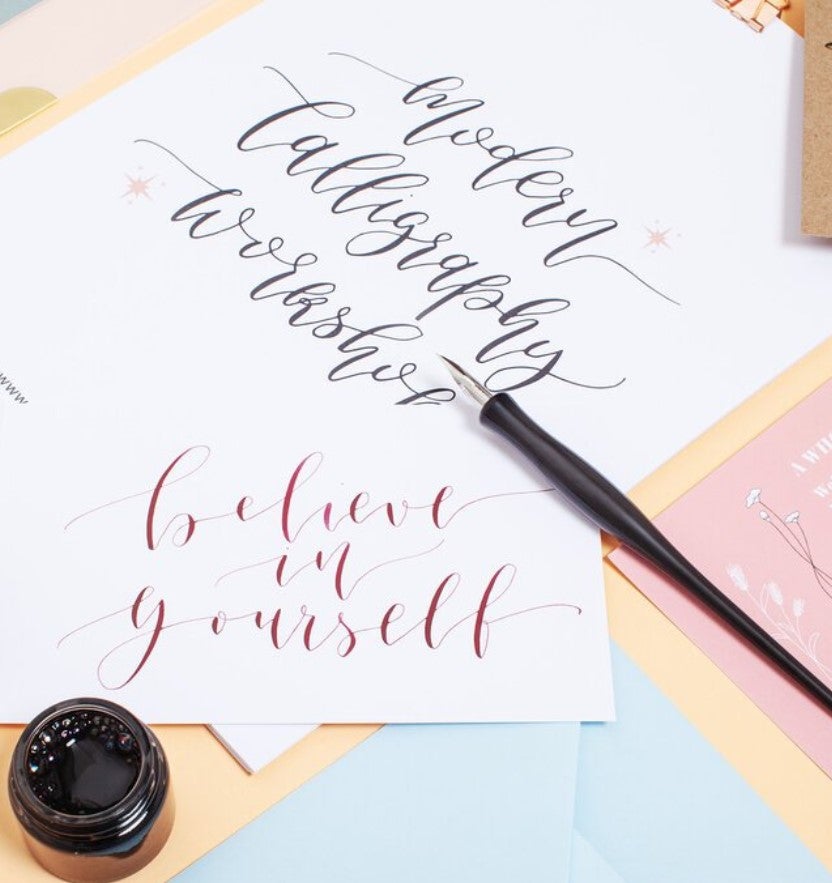 modern
Calligraphy
Workshop
www
believe
in
yourself
A WHO